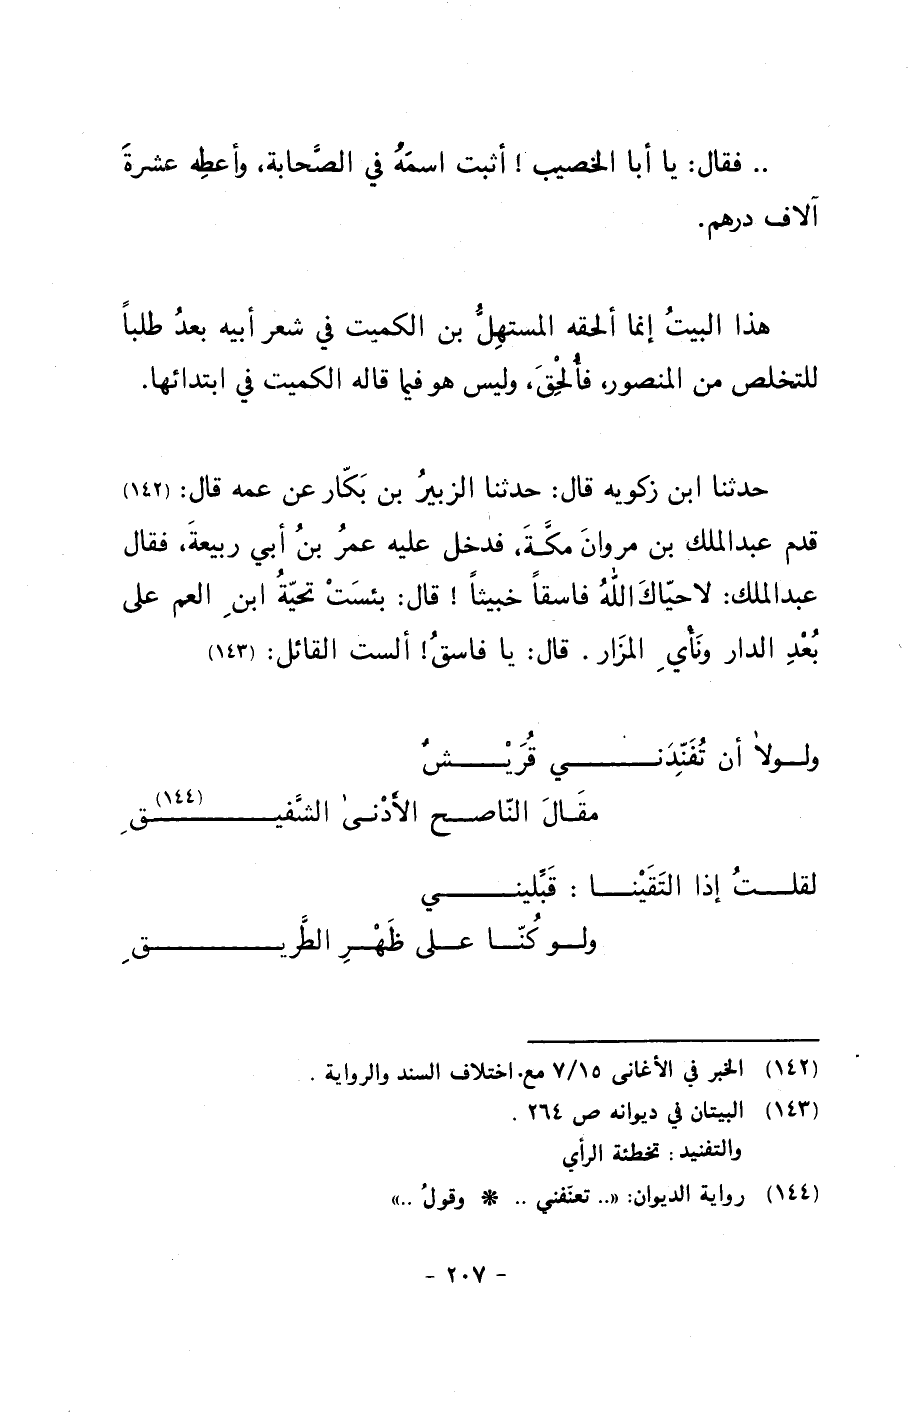 .. فقال: يا أبا الخصيب ! أثبت اسمَهُ في الصَّحابة، وأعطِه عشرةَ
آلاف درهم.
هذا البيتُ إنما ألحقه المستهِلُّ بن الكميت في شعر أبيه بعدُ طلباً
للتخلص من المنصور، فأُلْحِقَ، وليس هو فيما قاله الكميت في ابتدائها.
حدثنا ابن زكويه قال: حدثنا الزبيرُ بن بَكّار عن عمه قال: (١٤٢)
قدم عبدالملك بن مروانَ مكَّةَ، فدخل عليه عمرُ بنُ أبي ربيعةَ، فقال
عبدالملك: لاحيّاكَ اللهُ فاسقاً خبيثاً ! قال: بئسَتْ تحيّةُ ابنِ العم على
بُعْدِ الدار ونَأْيِ المزَار . قال: يا فاسقُ! ألست القائل: (١٤٣)
ولولا أن تُفَنِّدَني قُرَيْشٌ
مقَالَ النّاصح الأَدْنى الشَّفيقِ (١٤٤)
لقلتُ إذا التَقَيْنا : قَبِّليني
ولو كُنّا على ظَهْرِ الطَّريقِ
(١٤٢) الخبر في الأغانى ٧/١٥ مع اختلاف السند والرواية .
(١٤٣) البيتان في ديوانه ص ٢٦٤ .
والتفنيد : تخطئة الرأي
(١٤٤) رواية الديوان: «.. تعنّفني .. * وقولُ ..»
- ٢٠٧ -